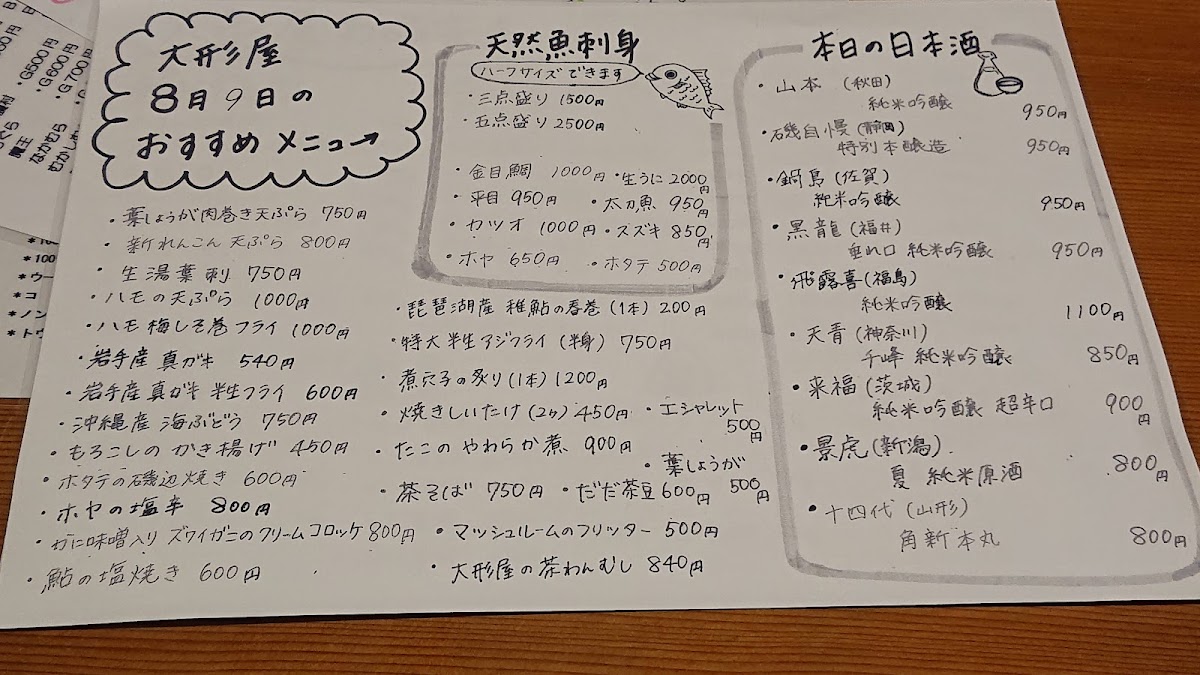 大形屋
8月9日の
おすすめメニュー→
・葉しょうが肉巻き天ぷら 750円
・新れんこん天ぷら 800円
・生湯葉刺 750円
・ハモの天ぷら 1000円
・ハモ梅しそ巻フライ 1000円
・岩手産真ガキ 540円
・岩手産真ガキ半生フライ 600円
・沖縄産海ぶどう 750円
・もろこしのかき揚げ 450円
・ホタテの磯辺焼き 600円
・ホヤの塩辛 800円
・かに味噌入りズワイガニのクリームコロッケ 800円
・鮎の塩焼き 600円
天然魚刺身
ハーフサイズできます
・三点盛り 1500円
・五点盛り 2500円
・金目鯛 1000円
・生うに 2000円
・平目 950円
・太刀魚 950円
・カツオ 1000円
・スズキ 850円
・ホヤ 650円
・ホタテ 500円
・琵琶湖産 稚鮎の春巻(1本) 200円
・特大半生アジフライ(半身) 750円
・煮穴子の炙り(1本) 1200円
・焼きしいたけ(2ヶ) 450円
・エシャレット 500円
・たこのやわらか煮 900円
・葉しょうが 500円
・茶そば 750円
・だだ茶豆 600円
・マッシュルームのフリッター 500円
・大形屋の茶わんむし 840円
本日の日本酒
・山本(秋田)
純米吟醸 950円
・磯自慢(静岡)
特別本醸造 950円
・鍋島(佐賀)
純米吟醸 950円
・黒龍(福井)
垂れ口 純米吟醸 950円
・飛露喜(福島)
純米吟醸 1100円
・天青(神奈川)
千峰 純米吟醸 850円
・来福(茨城)
純米吟醸 超辛口 900円
・景虎(新潟)
夏 純米原酒 800円
・十四代(山形)
角新本丸 800円
・G500円
・G600円
・G700円
魔王
なかむら